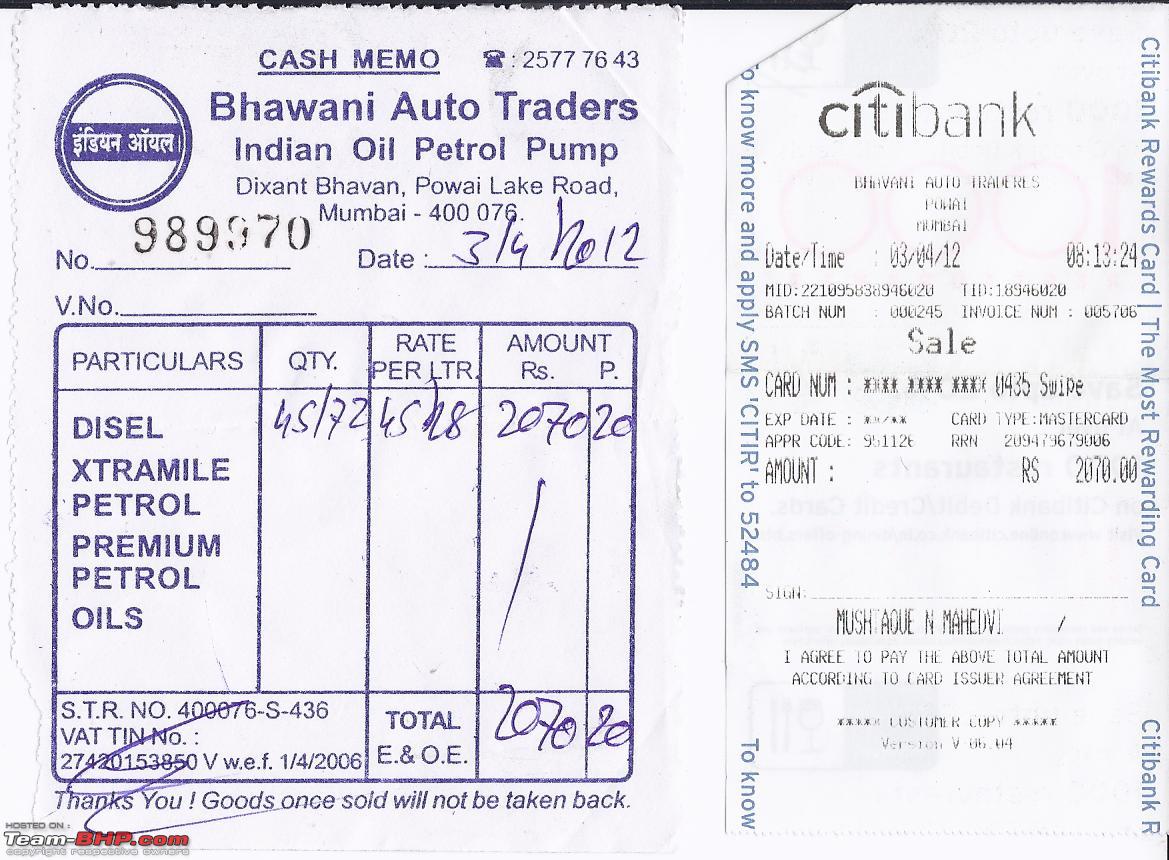 CASH MEMO ☎ : 2577 76 43
इंडियन ऑयल
Bhawani Auto Traders
Indian Oil Petrol Pump
Dixant Bhavan, Powai Lake Road,
Mumbai - 400 076.
No. 989970 Date : 3/4/2012
V.No.
PARTICULARS QTY. RATE PER LTR. AMOUNT Rs. P.
DISEL 45/72 45 28 2070 20
XTRAMILE
PETROL
PREMIUM
PETROL
OILS
S.T.R. NO. 400076-S-436
VAT TIN No. :
27420153850 V w.e.f. 1/4/2006
TOTAL 2070 20
E.& O.E.
Thanks You ! Goods once sold will not be taken back.
citibank
BHAVANI AUTO TRADERES
POWAI
MUMBAI
Date/Time : 03/04/12 08:13:24
MID:221095838946020 TID:18946020
BATCH NUM : 000245 INVOICE NUM : 005706
Sale
CARD NUM : **** **** **** 0435 Swipe
EXP DATE : **/** CARD TYPE:MASTERCARD
APPR CODE: 951126 RRN 209479679006
AMOUNT : RS 2070.00
SIGN:
MUSHTAQUE N MAHEDVI /
I AGREE TO PAY THE ABOVE TOTAL AMOUNT
ACCORDING TO CARD ISSUER AGREEMENT
***** CUSTOMER COPY *****
Version V 06.04
o know more and apply SMS 'CITIR' to 52484
To know
Citibank Rewards Card | The Most Rewarding Card
Citibank R
HOSTED ON :
Team-BHP.com
copyright respective owners